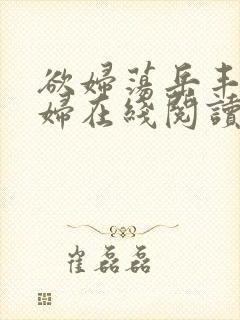 欲婦蕩岳丰
婦在綫閱讀
崔磊磊